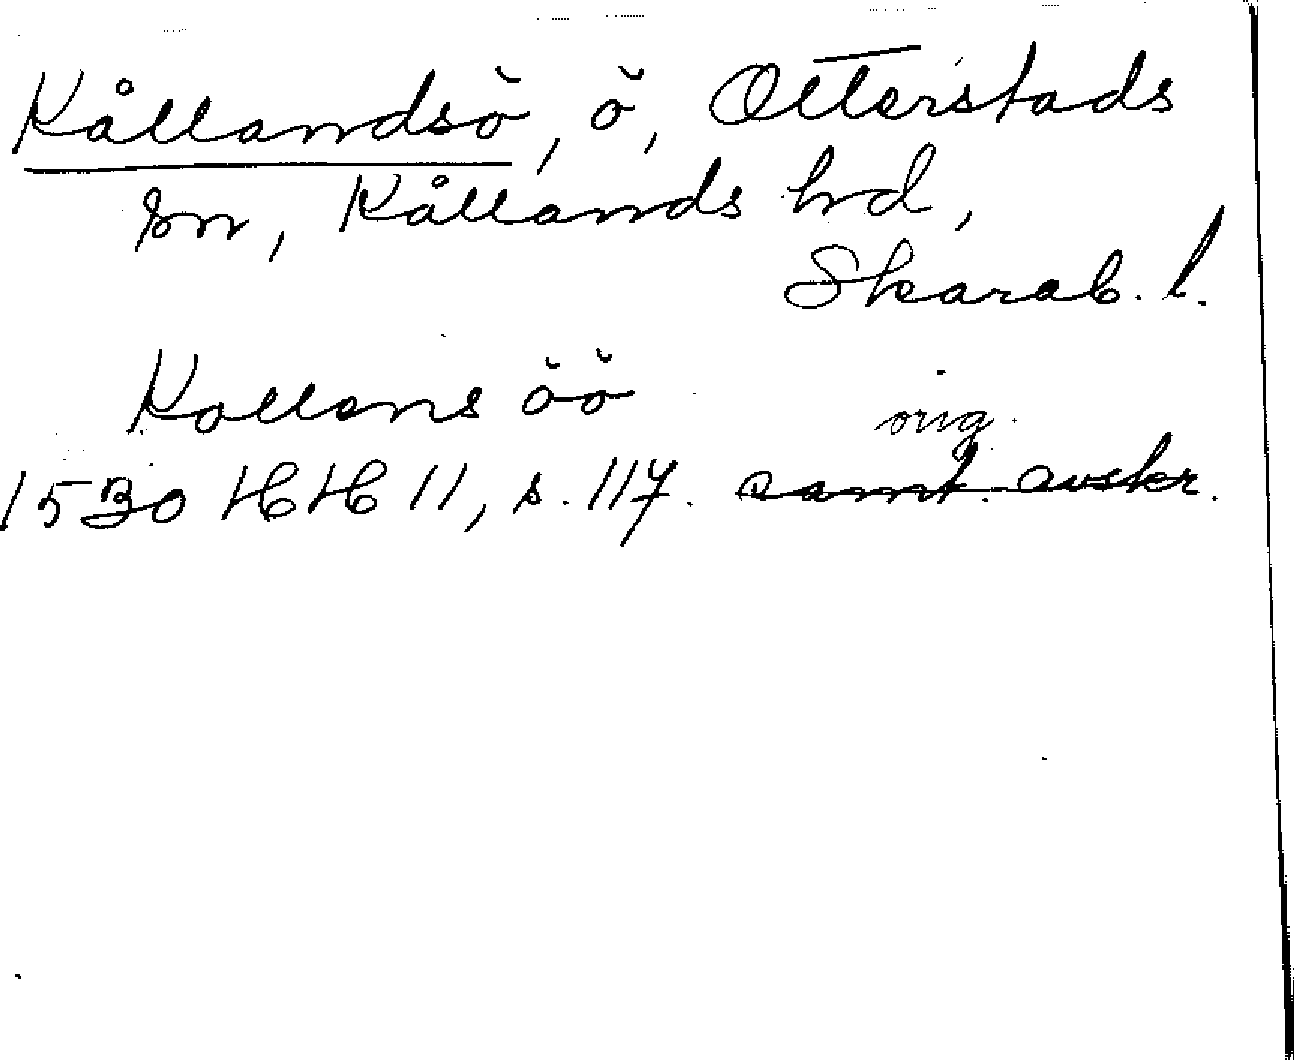 Kållandsö, ö, Otterstads
sn, Kållands hd,
Skarab. l.
Kollens öö
orig.
1530 HH 11, s. 117. samt. avskr.